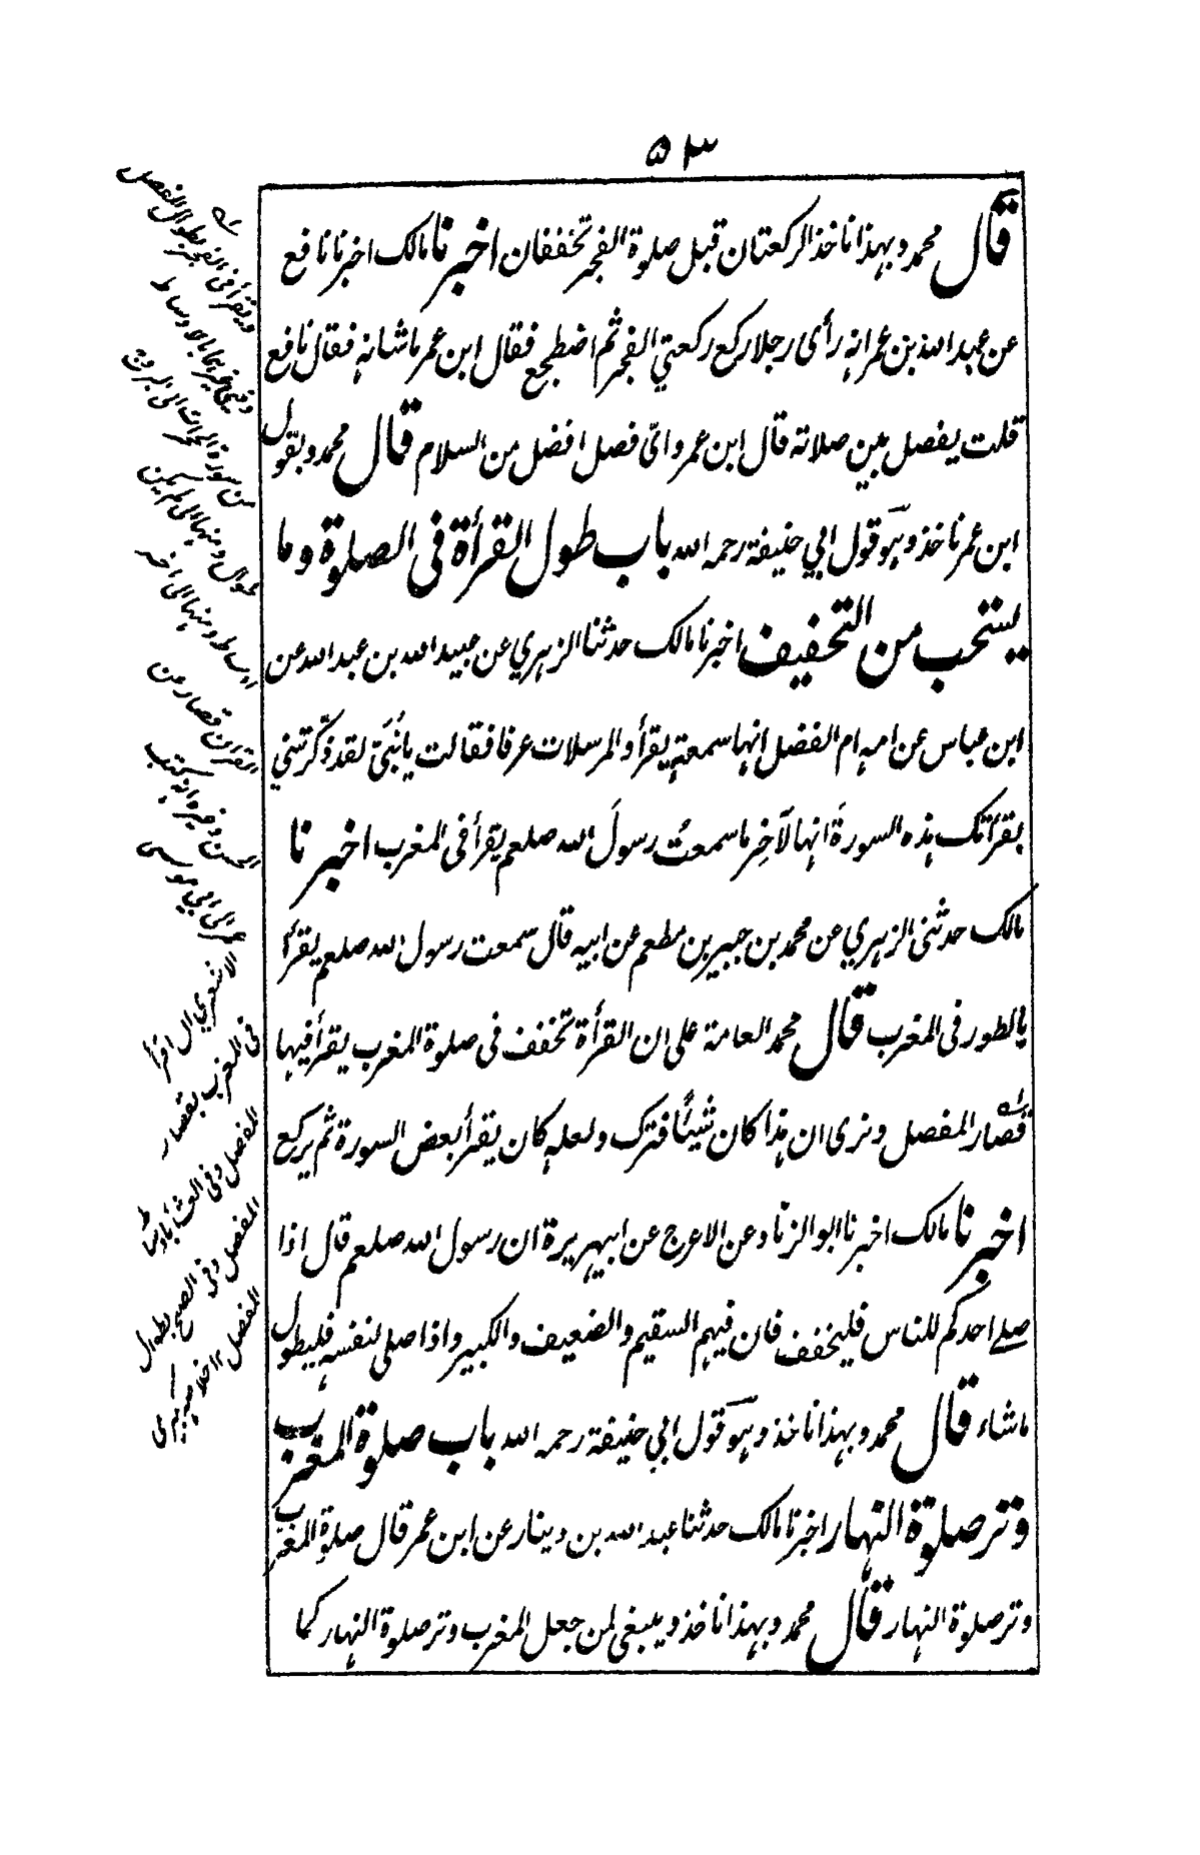 ٥٣
قال محمد وبهذا ناخذ الركعتان قبل صلوة الفجر تخففان اخبرنا مالك اخبرنا نافع
عن عبد الله بن عمر انه رأى رجلا ركع ركعتي الفجر ثم اضطجع فقال ابن عمر ما شانه فقال نافع
قلت يفصل بين صلاته قال ابن عمر واىّ فصل افضل من السلام قال محمد وبقول
ابن عمر ناخذ وهو قول ابي حنيفة رحمه الله باب طول القرأة فى الصلوة وما
يستحب من التخفيف اخبرنا مالك حدثنا الزهري عن عبيد الله بن عبد الله عن
ابن عباس عن امه ام الفضل انها سمعته يقرأ والمرسلات عرفا فقالت يا بُنَىَّ لقد ذكّرتني
بقرأتك هذه السورةَ انها لآخِر ما سمعتُ رسولَ الله صلعم يقرأ فى المغرب اخبرنا
مالك حدثنى الزهري عن محمد بن جبير بن مطعم عن ابيه قال سمعت رسول الله صلعم يقرأ
بالطور فى المغرب قال محمد العامة على ان القرأة تخفف فى صلوة المغرب يقرأ فيها
قصار المفصل ونرى ان هذا كان شيئًا فترك ولعله كان يقرأ بعض السورة ثم يركع
اخبرنا مالك اخبرنا ابو الزناد عن الاعرج عن ابيهريرة ان رسول الله صلعم قال اذا
صلے احدكم للناس فليخفف فان فيهم السقيم والضعيف والكبير واذا صلى لنفسه فليطول
ما شاء قال محمد وبهذا ناخذ وهو قول ابي حنيفة رحمه الله باب صلوة المغرب
وتر صلوة النهار اخبرنا مالك حدثنا عبد الله بن دينار عن ابن عمر قال صلوة المغرب
وتر صلوة النهار قال محمد وبهذا ناخذ وينبغى لمن جعل المغرب وتر صلوة النهار كما
ويقرأ فى الفجر بطوال المفصل
من سورة الحجرات الى البروج
طوال ومنها الى لم يكن
اوساط ومنها الى آخر
القران قصار عن
الحسن وغيره انه كتب
عمر الى ابي موسى
الاشعري ان اقرأ
فى المغرب بقصار
المفصل وفى العشاء باوساط
المفصل وفى الصبح بطوال
المفصل